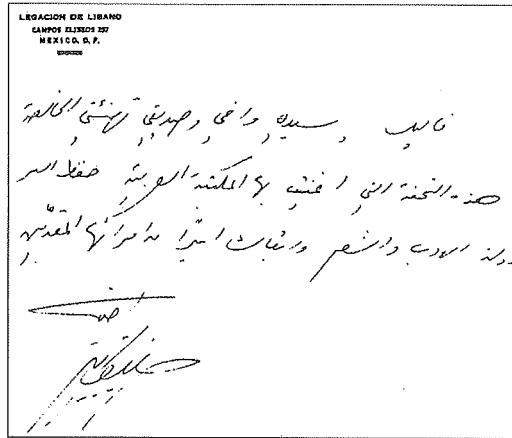 LEGACION DE LIBANO
CAMPOS ELISEOS 297
MEXICO, D. F.
فاليك يا سيدي واخي وصديقي تهنئتي الخالصة
هذه التحفة التي اغنيت بها المكتبة العربية حفظك الله
لدولة الادب والشعر وابقاك اميرا من امرائها المقدّمين